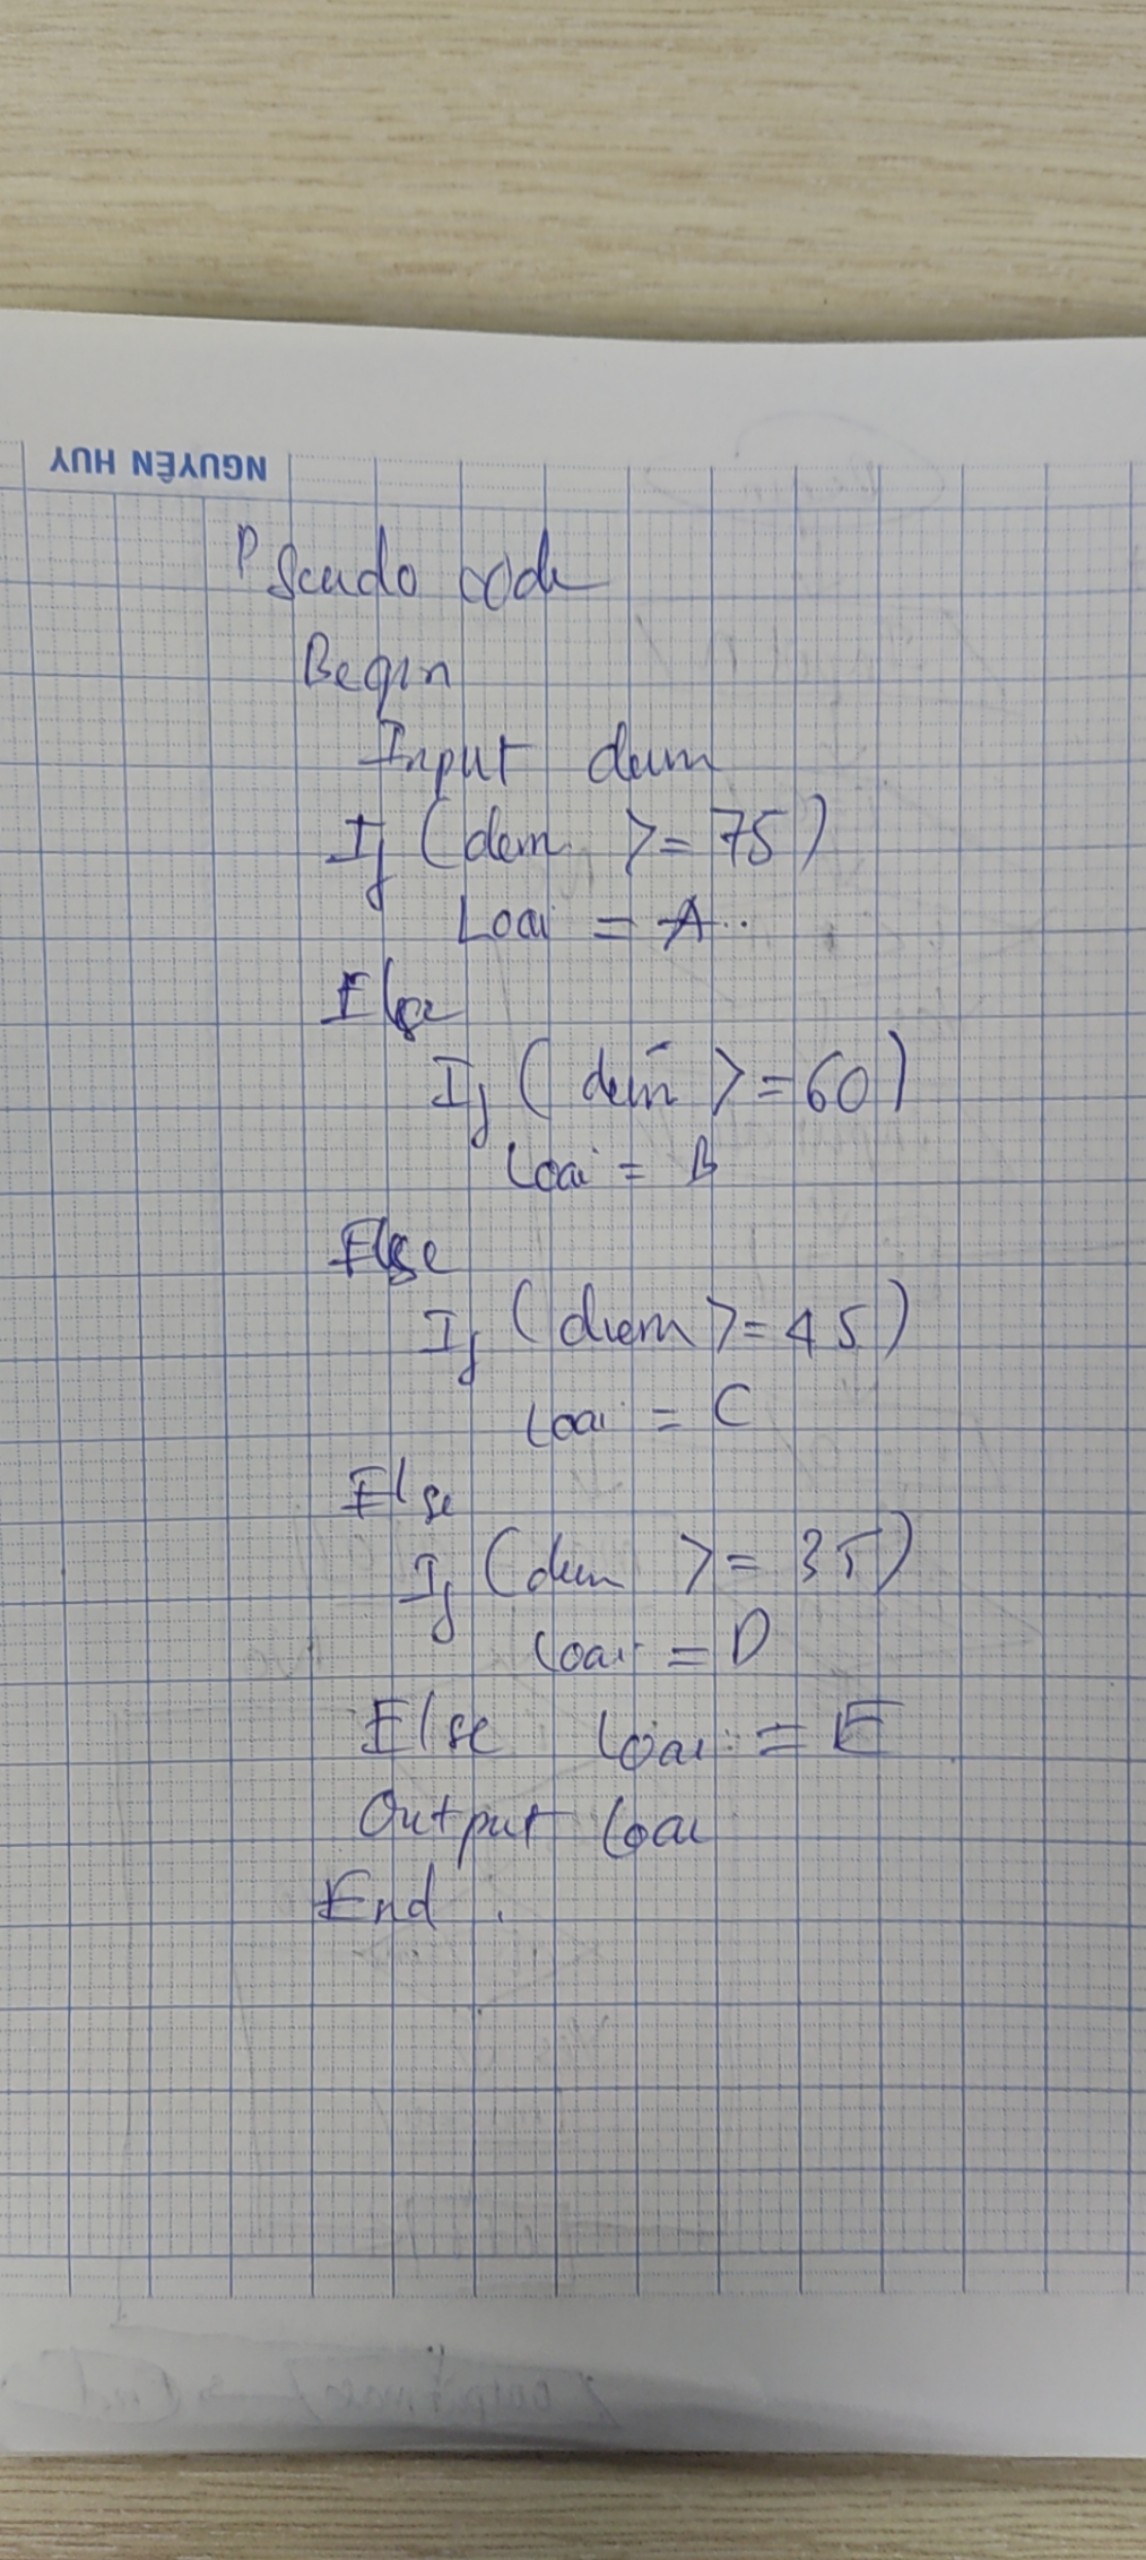 NGUYÊN HUY
Pseudo code
Begin
Input diem
If (diem >= 75)
Loai = A
Else
If (diem >= 60)
Loai = B
Else
If (diem >= 45)
Loai = C
Else
If (diem >= 35)
Loai = D
Else Loai = E
Output Loai
End.